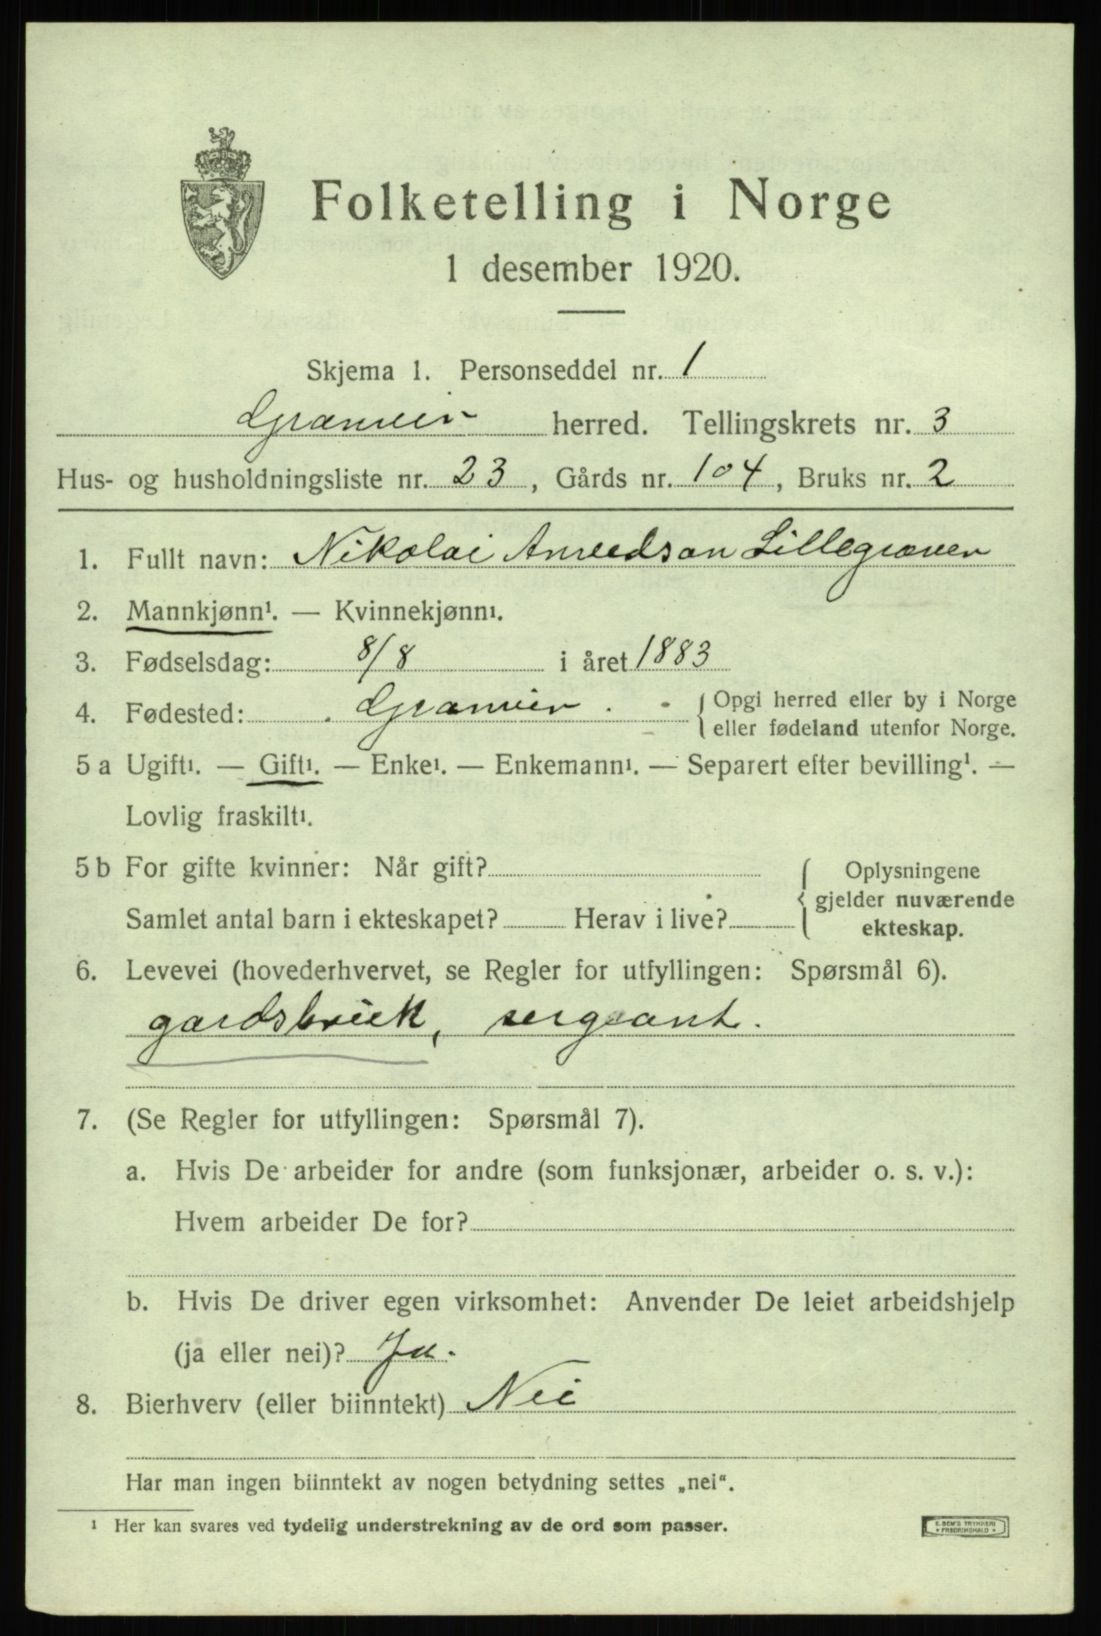 Folketelling i Norge
1 desember 1920.
Skjema 1. Personseddel nr. 1
Granvin herred. Tellingskrets nr. 3
Hus- og husholdningsliste nr. 23, Gårds nr. 104, Bruks nr. 2
1. Fullt navn: Nikolai Amundson Lillegraven
2. Mannkjønn¹. — Kvinnekjønn¹.
3. Fødselsdag: 8/8 i året 1883
4. Fødested: Granvin. { Opgi herred eller by i Norge
eller fødeland utenfor Norge.
5 a Ugift¹. — Gift¹. — Enke¹. — Enkemann¹. — Separert efter bevilling¹. —
Lovlig fraskilt¹.
5 b For gifte kvinner: Når gift?
Samlet antal barn i ekteskapet? Herav i live?
{ Oplysningene
gjelder nuværende
ekteskap.
6. Levevei (hovederhvervet, se Regler for utfyllingen: Spørsmål 6).
gardsbruk, sergeant.
7. (Se Regler for utfyllingen: Spørsmål 7).
a. Hvis De arbeider for andre (som funksjonær, arbeider o. s. v.):
Hvem arbeider De for?
b. Hvis De driver egen virksomhet: Anvender De leiet arbeidshjelp
(ja eller nei)? Ja.
8. Bierhverv (eller biinntekt) Nei
Har man ingen biinntekt av nogen betydning settes „nei“.
¹ Her kan svares ved tydelig understrekning av de ord som passer.
E. SEM'S TRYKKERI
• FREDRIKSHALD •